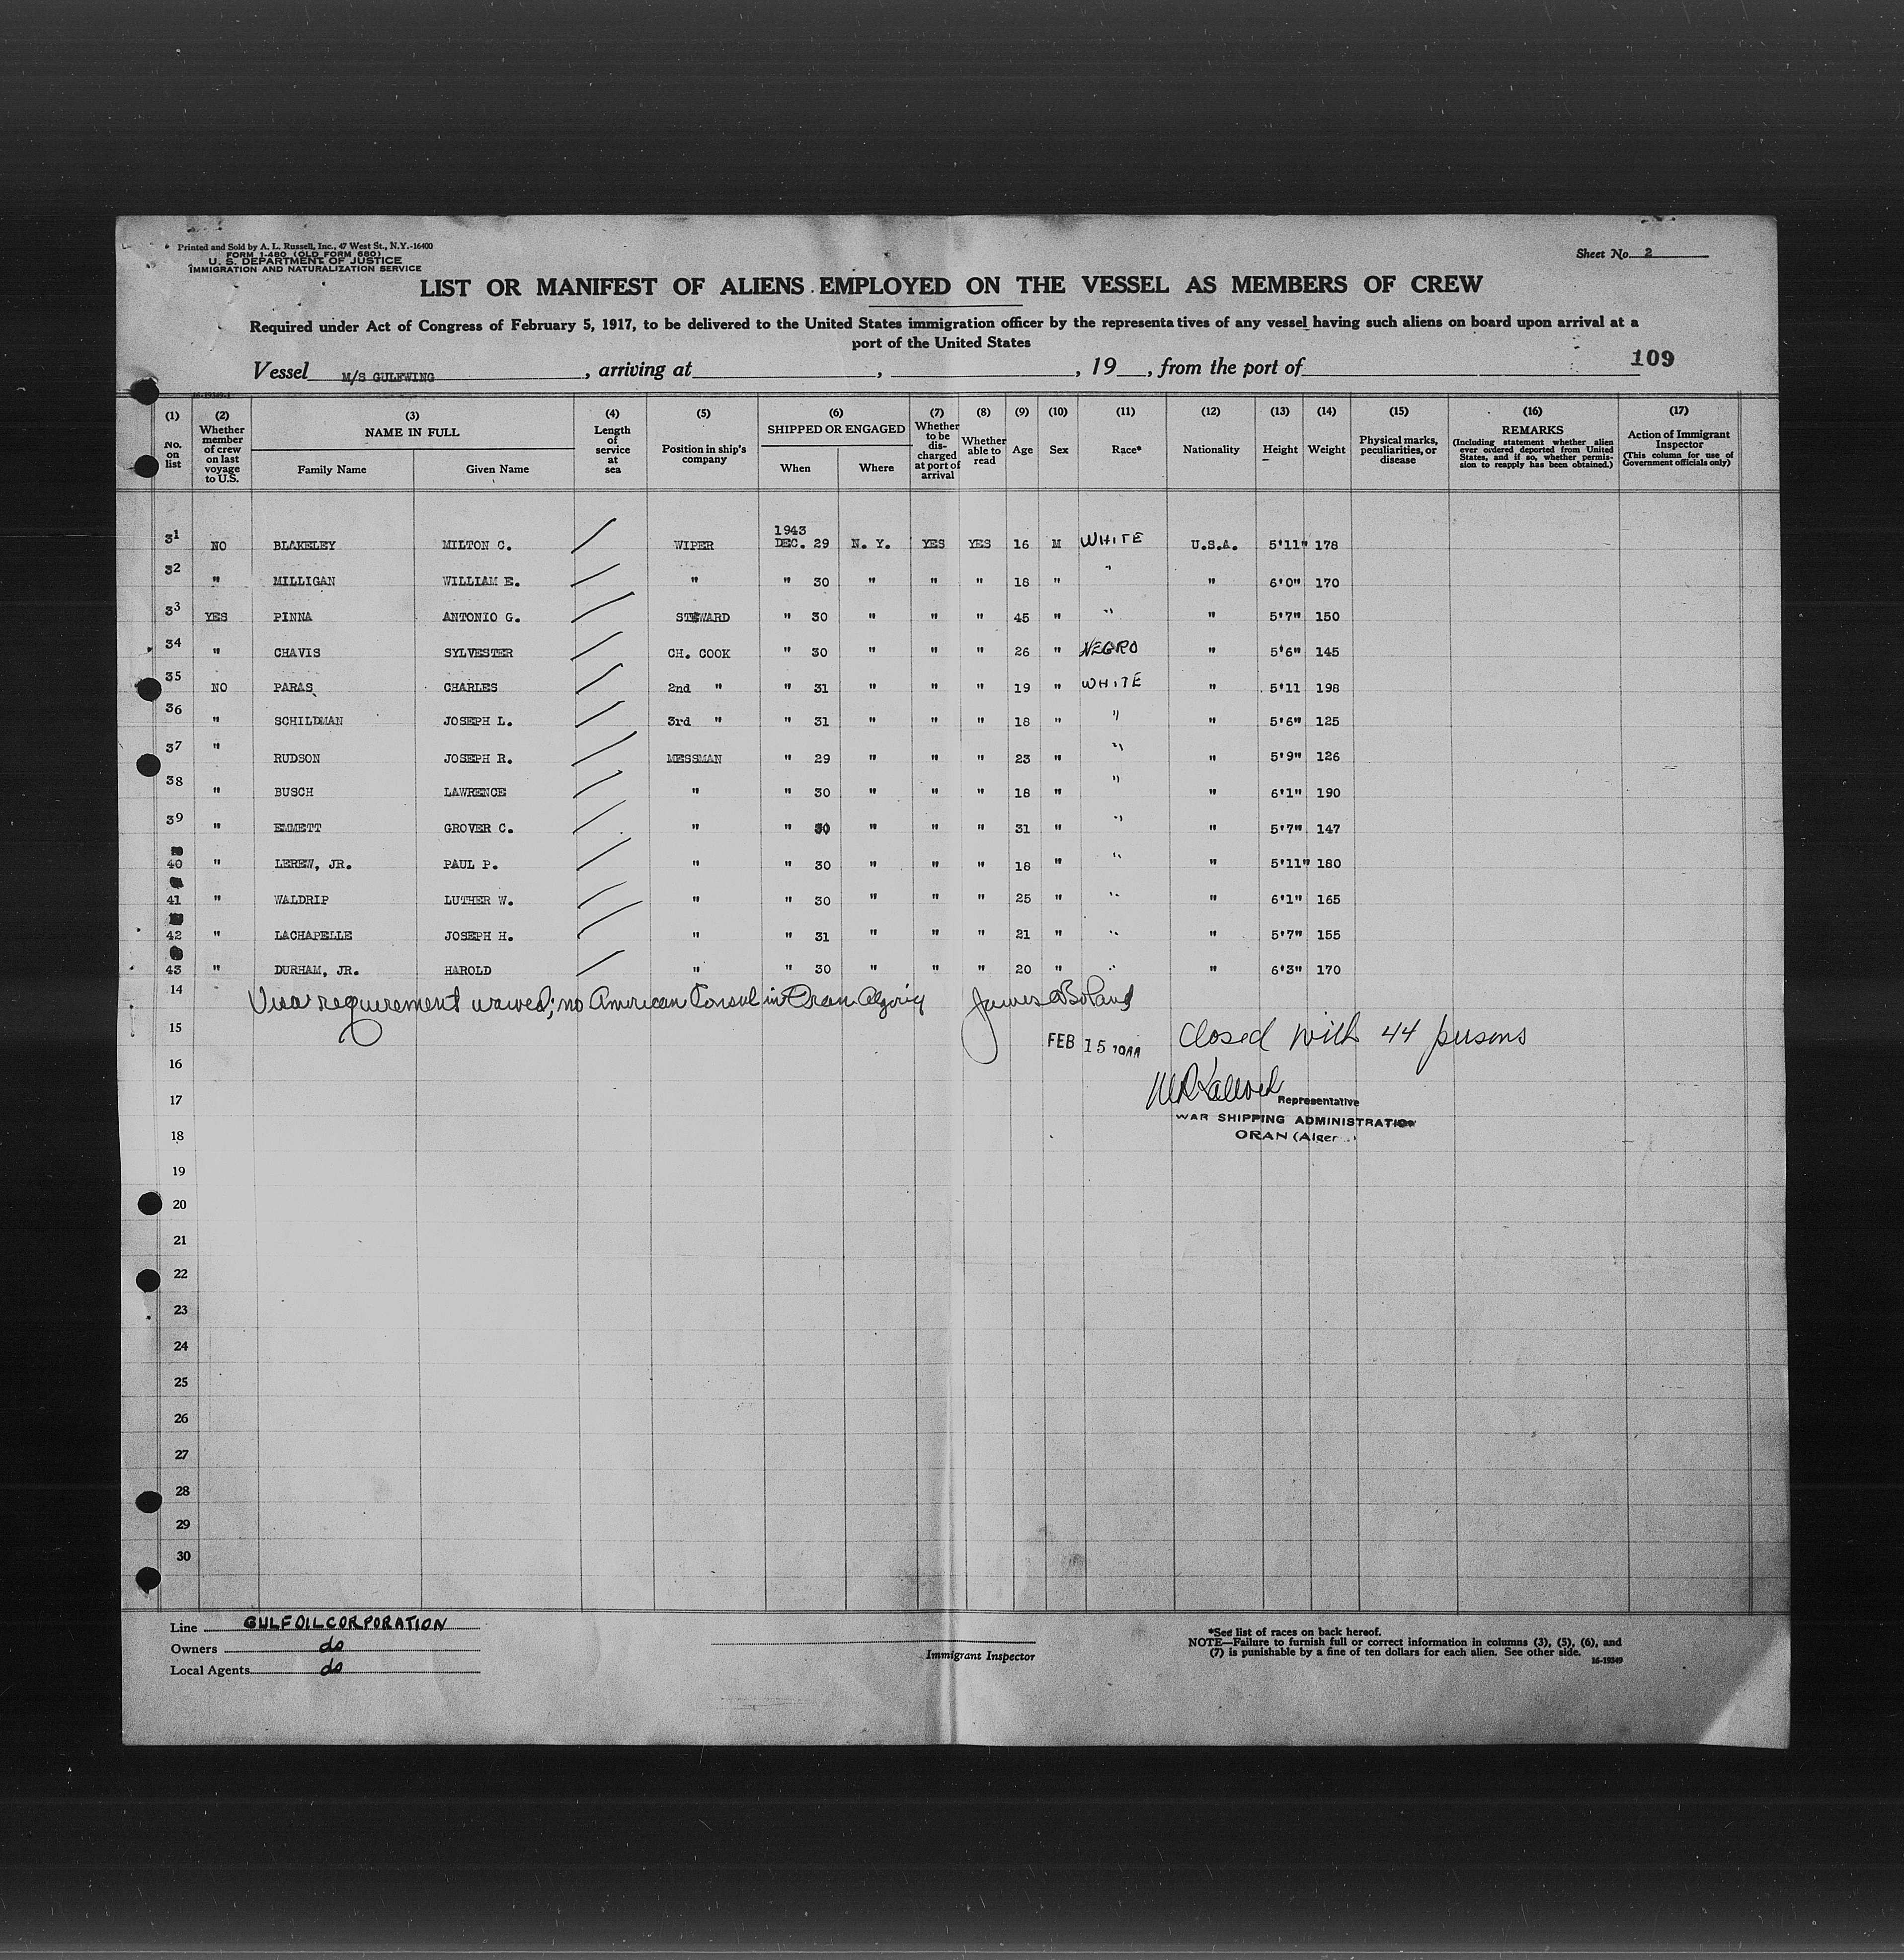 Printed and Sold by A. L. Russell, Inc., 47 West St., N.Y.-16400
FORM I-480 (OLD FORM 680)
U. S. DEPARTMENT OF JUSTICE
IMMIGRATION AND NATURALIZATION SERVICE
Sheet No. 2
LIST OR MANIFEST OF ALIENS EMPLOYED ON THE VESSEL AS MEMBERS OF CREW
Required under Act of Congress of February 5, 1917, to be delivered to the United States immigration officer by the representatives of any vessel having such aliens on board upon arrival at a
port of the United States
109
Vessel M/S GULFWING, arriving at , , 19 , from the port of
(1) (2) (3) (4) (5) (6) (7) (8) (9) (10) (11) (12) (13) (14) (15) (16) (17)
No. on list
Whether member of crew on last voyage to U.S.
NAME IN FULL
Family Name
Given Name
Length of service at sea
Position in ship's company
SHIPPED OR ENGAGED
When
Where
Whether to be discharged at port of arrival
Whether able to read
Age
Sex
Race*
Nationality
Height
Weight
Physical marks, peculiarities, or disease
REMARKS
(Including statement whether alien ever ordered deported from United States, and if so, whether permission to reapply has been obtained.)
Action of Immigrant Inspector
(This column for use of Government officials only)
1943
31 NO BLAKELEY MILTON C. WIPER DEC. 29 N. Y. YES YES 16 M WHITE U.S.A. 5'11" 178
32 " MILLIGAN WILLIAM E. " " 30 " " " 18 " " " 6'0" 170
33 YES PINNA ANTONIO G. STEWARD " 30 " " " 45 " " " 5'7" 150
34 " CHAVIS SYLVESTER CH. COOK " 30 " " " 26 " NEGRO " 5'6" 145
35 NO PARAS CHARLES 2nd " " 31 " " " 19 " WHITE " 5'11 198
36 " SCHILDMAN JOSEPH L. 3rd " " 31 " " " 18 " " " 5'6" 125
37 " RUDSON JOSEPH R. MESSMAN " 29 " " " 23 " " " 5'9" 126
38 " BUSCH LAWRENCE " " 30 " " " 18 " " " 6'1" 190
39 " EMMETT GROVER C. " " 30 " " " 31 " " " 5'7" 147
40 " LEREW, JR. PAUL P. " " 30 " " " 18 " " " 5'11" 180
41 " WALDRIP LUTHER W. " " 30 " " " 25 " " " 6'1" 165
42 " LACHAPELLE JOSEPH H. " " 31 " " " 21 " " " 5'7" 155
43 " DURHAM, JR. HAROLD " " 30 " " " 20 " " " 6'3" 170
14 Visa requirement waived; no American Consul in Oran Algeria James Boland
15 FEB 15 1944 Closed with 44 persons
16
17 Representative
WAR SHIPPING ADMINISTRATION
18 ORAN (Alger
19
20
21
22
23
24
25
26
27
28
29
30
Line GULF OIL CORPORATION
Owners do
Local Agents do
Immigrant Inspector
*See list of races on back hereof.
NOTE—Failure to furnish full or correct information in columns (3), (5), (6), and
(7) is punishable by a fine of ten dollars for each alien. See other side.
16-19349